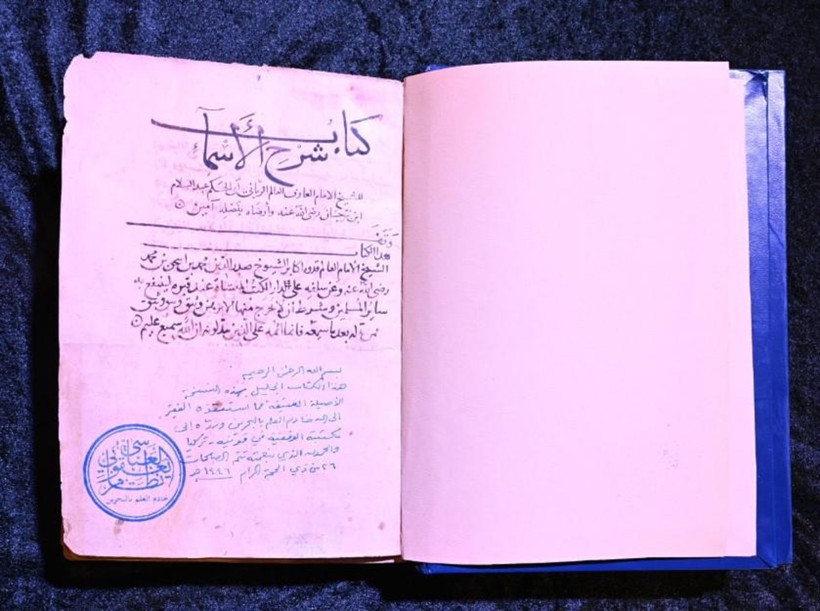 كتاب
شرح الأسماء
للشيخ الامام العارف العالم الرباني أبي الحكم عبد السلام
ابن برجان رضي الله عنه وأرضاه بفضله آمين
وقف
هذا الكتاب
الشيخ الامام العالم قدوة اكابر الشيوخ صدر الدين محمد بن اسحق بن محمد
رضي الله عنه وعن سلفه على الدار الكتب المنشاة عند قبره لينتفع به
سائر المسلمين وشرط ان لا يخرج منها لا برهن وثيق وغير وثيق
فمن بدله بعد ما سمعه فانما اثمه على الذين يبدلونه ان الله سميع عليم
بسم الله الرحمن الرحيم
هذا الكتاب الجليل بهذه النسخة
الأصيلة العتيقة مما استنقذه الفقير
إلى الله خادم العلم بالبحرين ورده إلى
مكتبته الوقفية في قونية - تركيا
والحمد لله الذي بنعمته تتم الصالحات
٢٦ من ذي الحجة الحرام ١٤٤٦ هـ
نظام
اليعقوبي
العباسي
خادم العلم بالبحرين